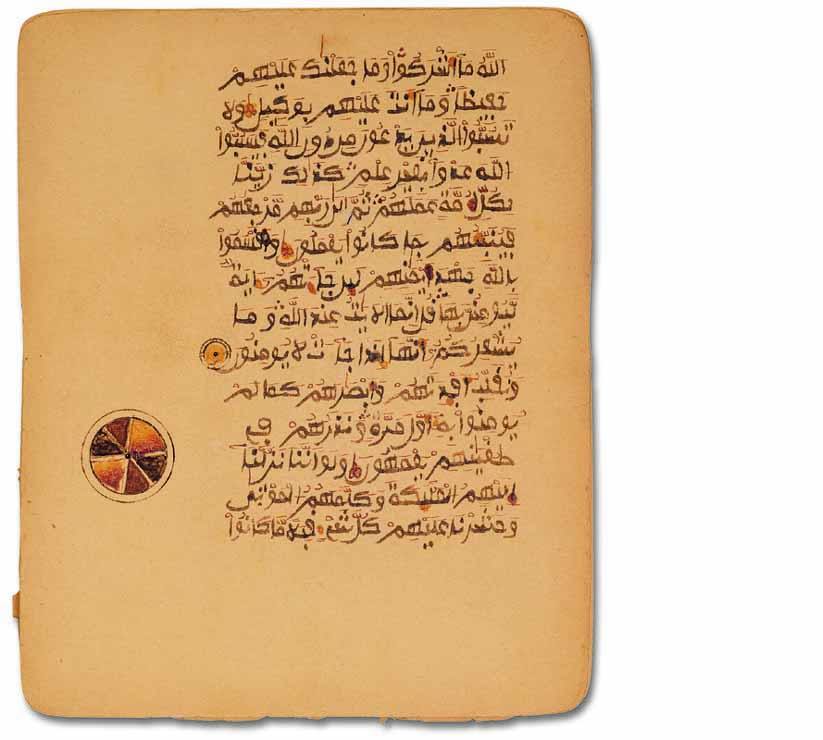 الله ما اشركوا وما جعلنك عليهم
حفيظا وما انت عليهم بوكيل ولا
تسبوا الذين يدعون من دون الله فيسبوا
الله عدوا بغير علم كذلك زينا
لكل امة عملهم ثم الى ربهم مرجعهم
فينبئهم بما كانوا يعملون واقسموا
بالله جهد ايمنهم لين جاتهم اية
ليومنن بها قل انما الايت عند الله وما
يشعركم انها اذا جات لا يومنون
ونقلب افدتهم وابصرهم كما لم
يومنوا به اول مرة ونذرهم في
طغينهم يعمهون ولو اننا نزلنا
اليهم المليكة وكلمهم الموتى
وحشرنا عليهم كل شىء قبلا ما كانوا